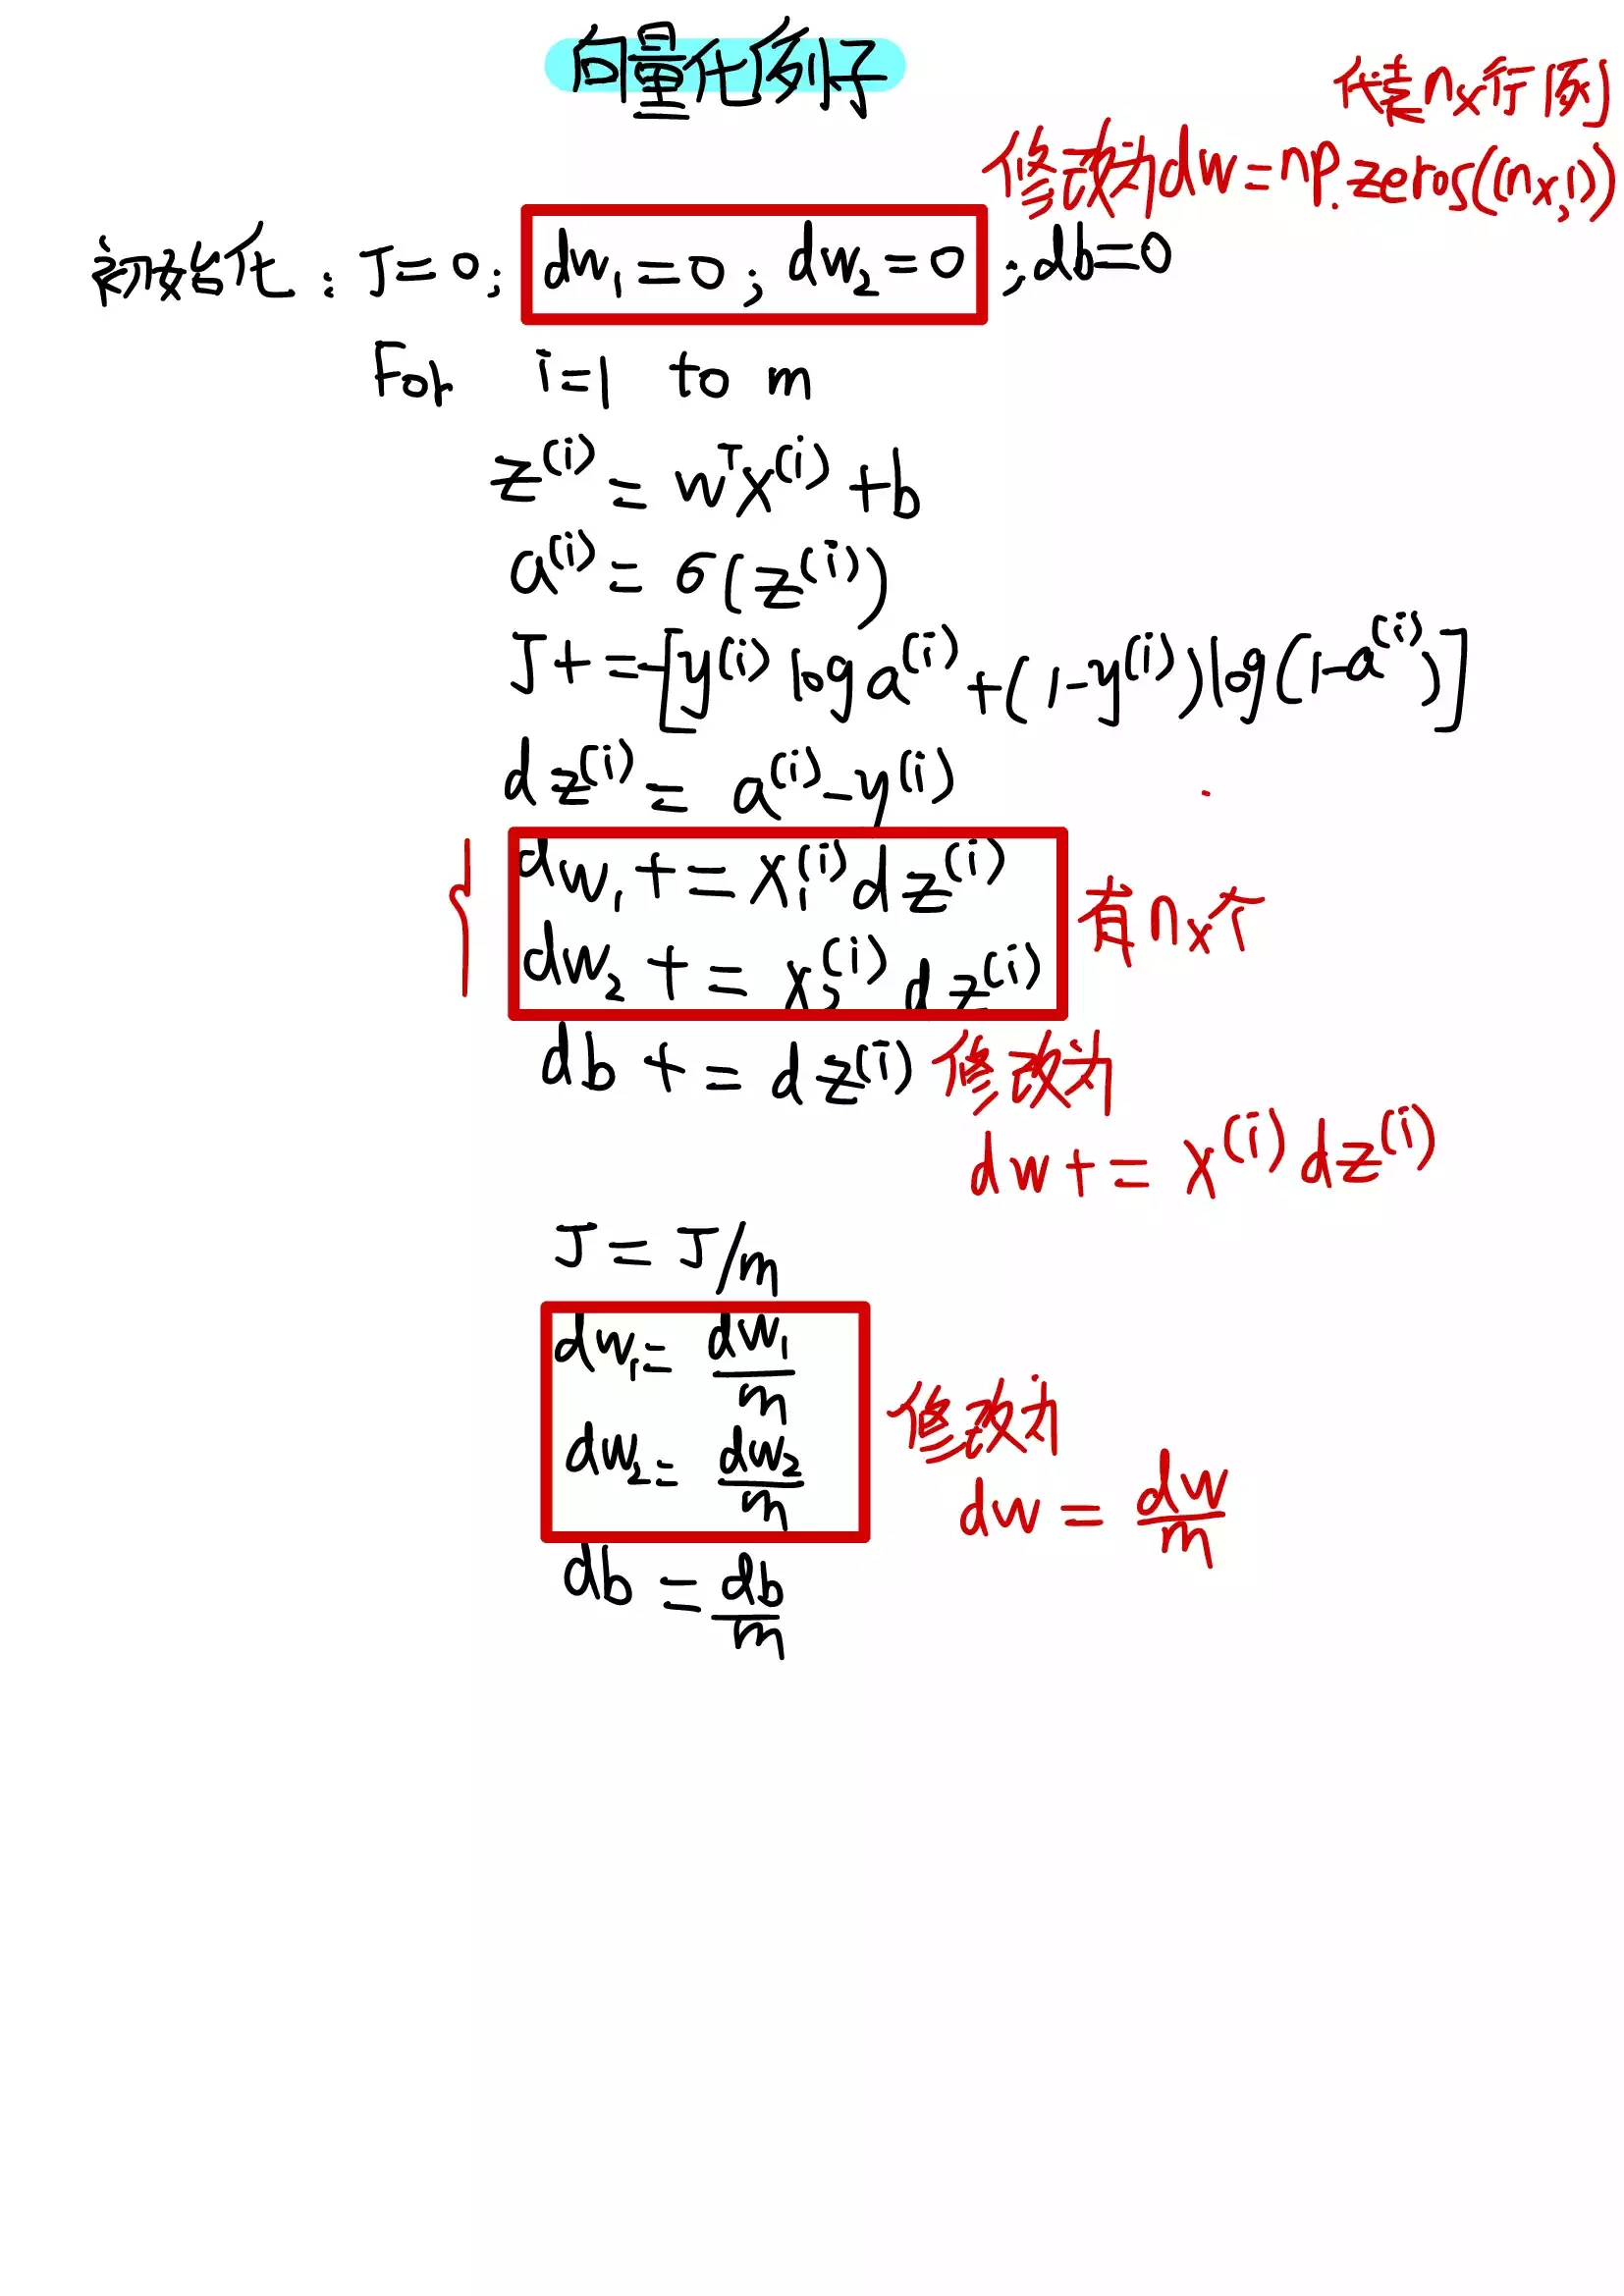 向量化例子
代表nx行1列
修改为dw=np.zeros((nx,1))
初始化：J=0; dw₁=0; dw₂=0; db=0
For i=1 to m
z⁽ⁱ⁾=wᵀx⁽ⁱ⁾+b
a⁽ⁱ⁾=σ(z⁽ⁱ⁾)
J+=-[y⁽ⁱ⁾log a⁽ⁱ⁾+(1-y⁽ⁱ⁾)log(1-a⁽ⁱ⁾)]
dz⁽ⁱ⁾=a⁽ⁱ⁾-y⁽ⁱ⁾
dw₁+=x₁⁽ⁱ⁾dz⁽ⁱ⁾
有nx个
dw₂+=x₂⁽ⁱ⁾dz⁽ⁱ⁾
db+=dz⁽ⁱ⁾ 修改为
dw+=x⁽ⁱ⁾dz⁽ⁱ⁾
J=J/m
dw₁=dw₁/m
修改为
dw₂=dw₂/m
dw=dw/m
db=db/m